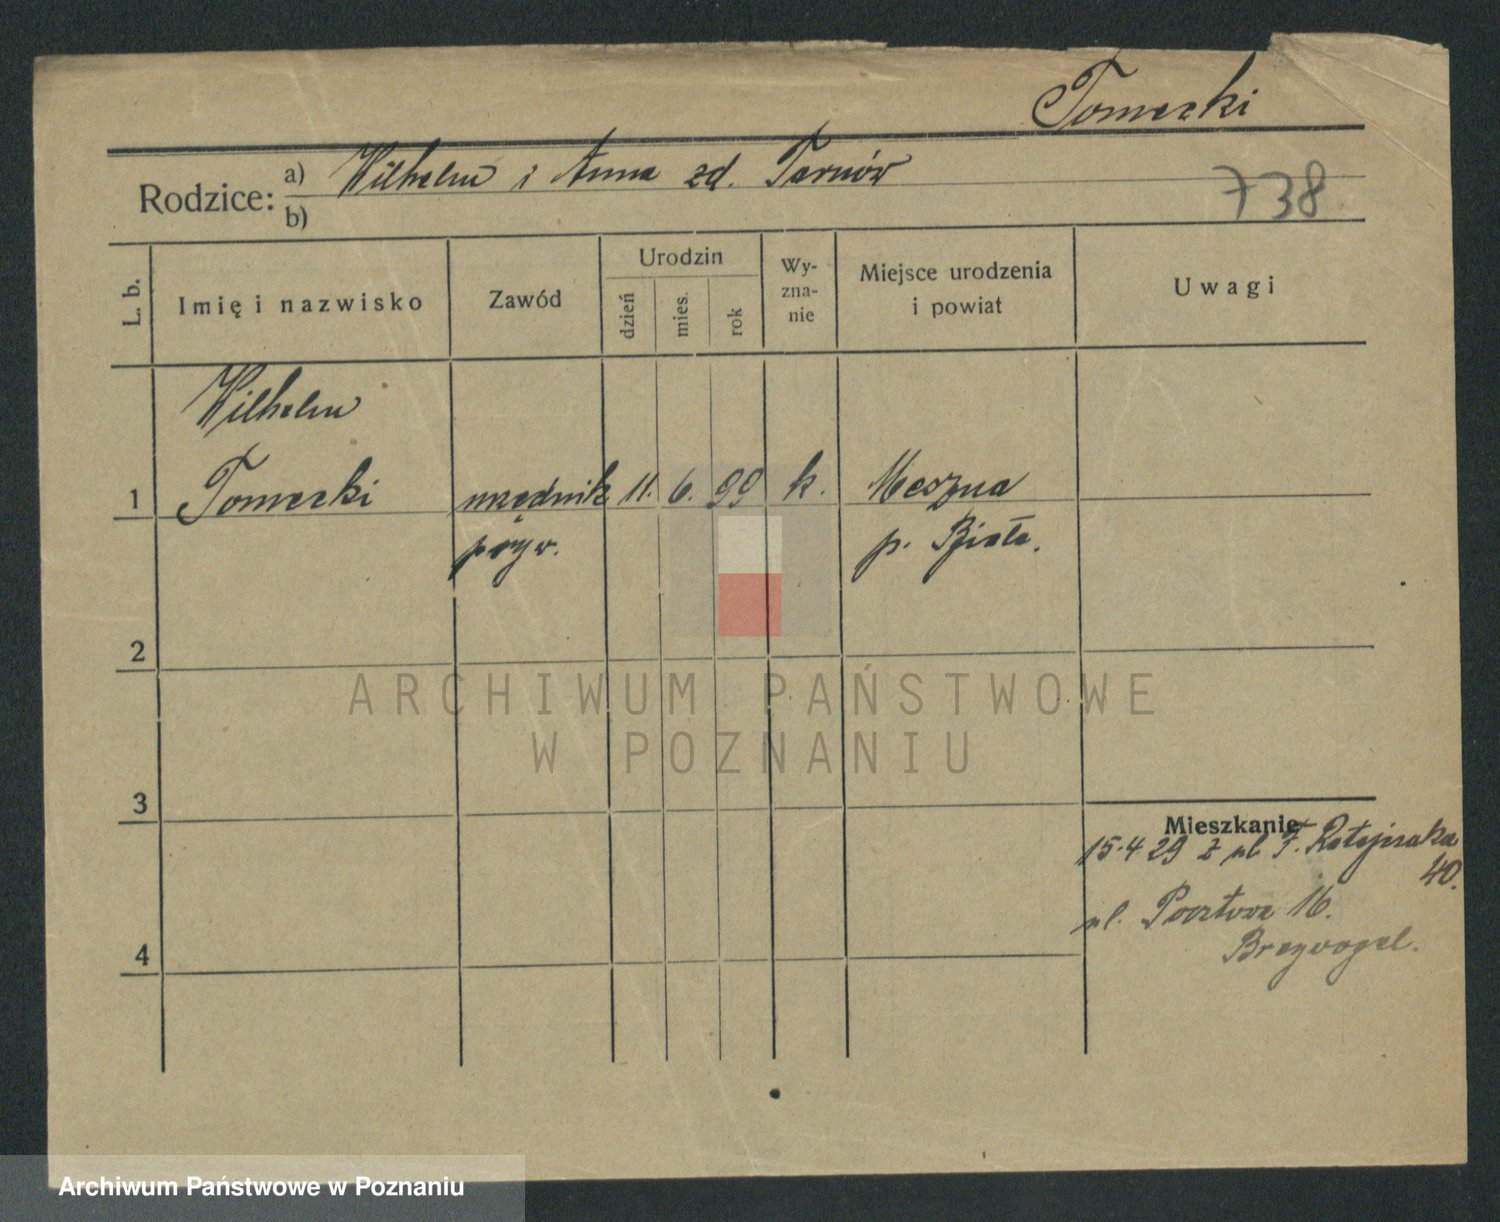 Tomecki
Rodzice: a) Wilhelm i Anna zd. Tarnów
b)
738
L. b.
Imię i nazwisko
Zawód
Urodzin
dzień
mies.
rok
Wy-
zna-
nie
Miejsce urodzenia
i powiat
Uwagi
Wilhelm
1 Tomecki urzędnik 11. 6. 99 k. Meszna
pryw. p. Biała.
2
ARCHIWUM PAŃSTWOWE
W POZNANIU
3
Mieszkanie
15.4 29 z ul. F. Ratajczaka
40.
ul. Pocztowa 16.
4
Archiwum Państwowe w Poznaniu